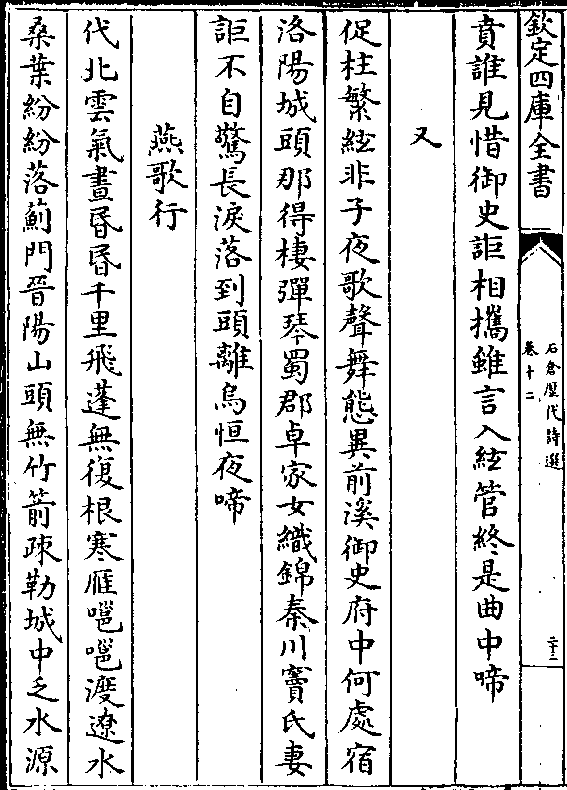 欽定四庫全書
石倉歷代詩選
卷十二
二十二
賁誰見惜御史詎相攜雖言入絃管終是曲中啼
又
促柱繁絃非子夜歌聲舞態異前溪御史府中何處宿
洛陽城頭那得棲彈琴蜀郡卓家女織錦秦川竇氏妻
詎不自驚長淚落到頭離烏恒夜啼
燕歌行
代北雲氣晝昏昏千里飛蓬無復根寒雁嗈嗈渡遼水
桑葉紛紛落薊門晉陽山頭無竹箭疎勒城中乏水源